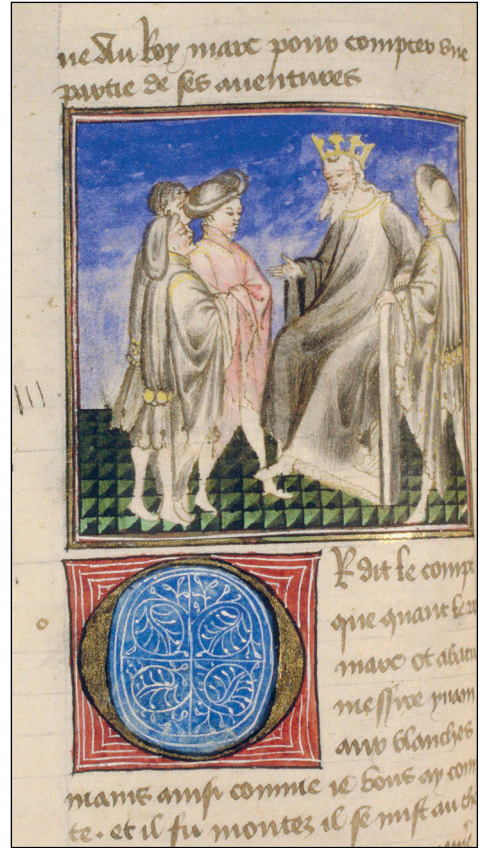 ne Au Roy marc pour compter vne
partie de ses auentures
OR dit le compt
que quant le r
marc ot abatu
messire yuain
aux blanches
mains ainsi comme ie vous ay com
te. et il fu montez il se mist au che